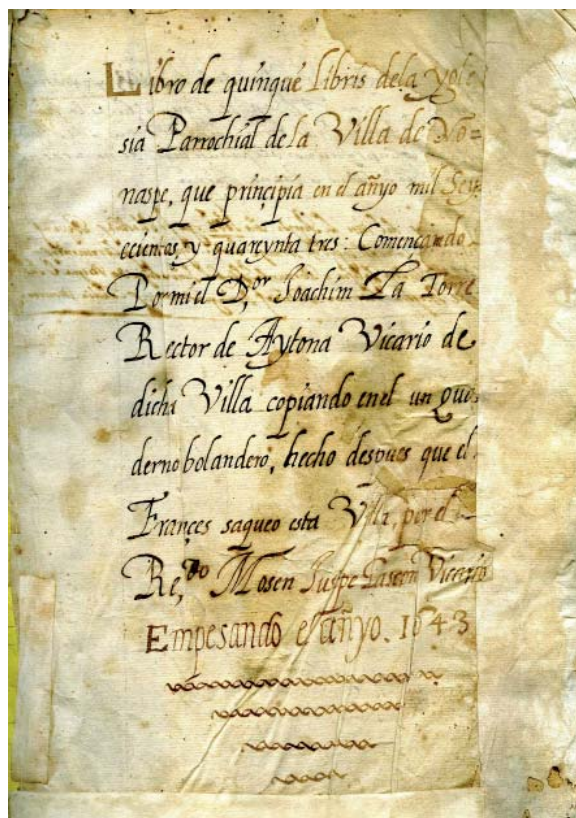 Libro de quinque Libris dela Ygle
sia Parrochial de la Villa de No=
naspe, que principia en el añyo mil Sey
ecientos, y quareynta tres: Començando
Por mi el D.or Joachim La Torre
Rector de Aytona Vicario de
dicha Villa copiando enel un qua
derno bolandero, hecho despues que el
Frances saqueo esta Villa, por el
Re,do Mosen Juspe Vicario
Empesando el añyo. 1643